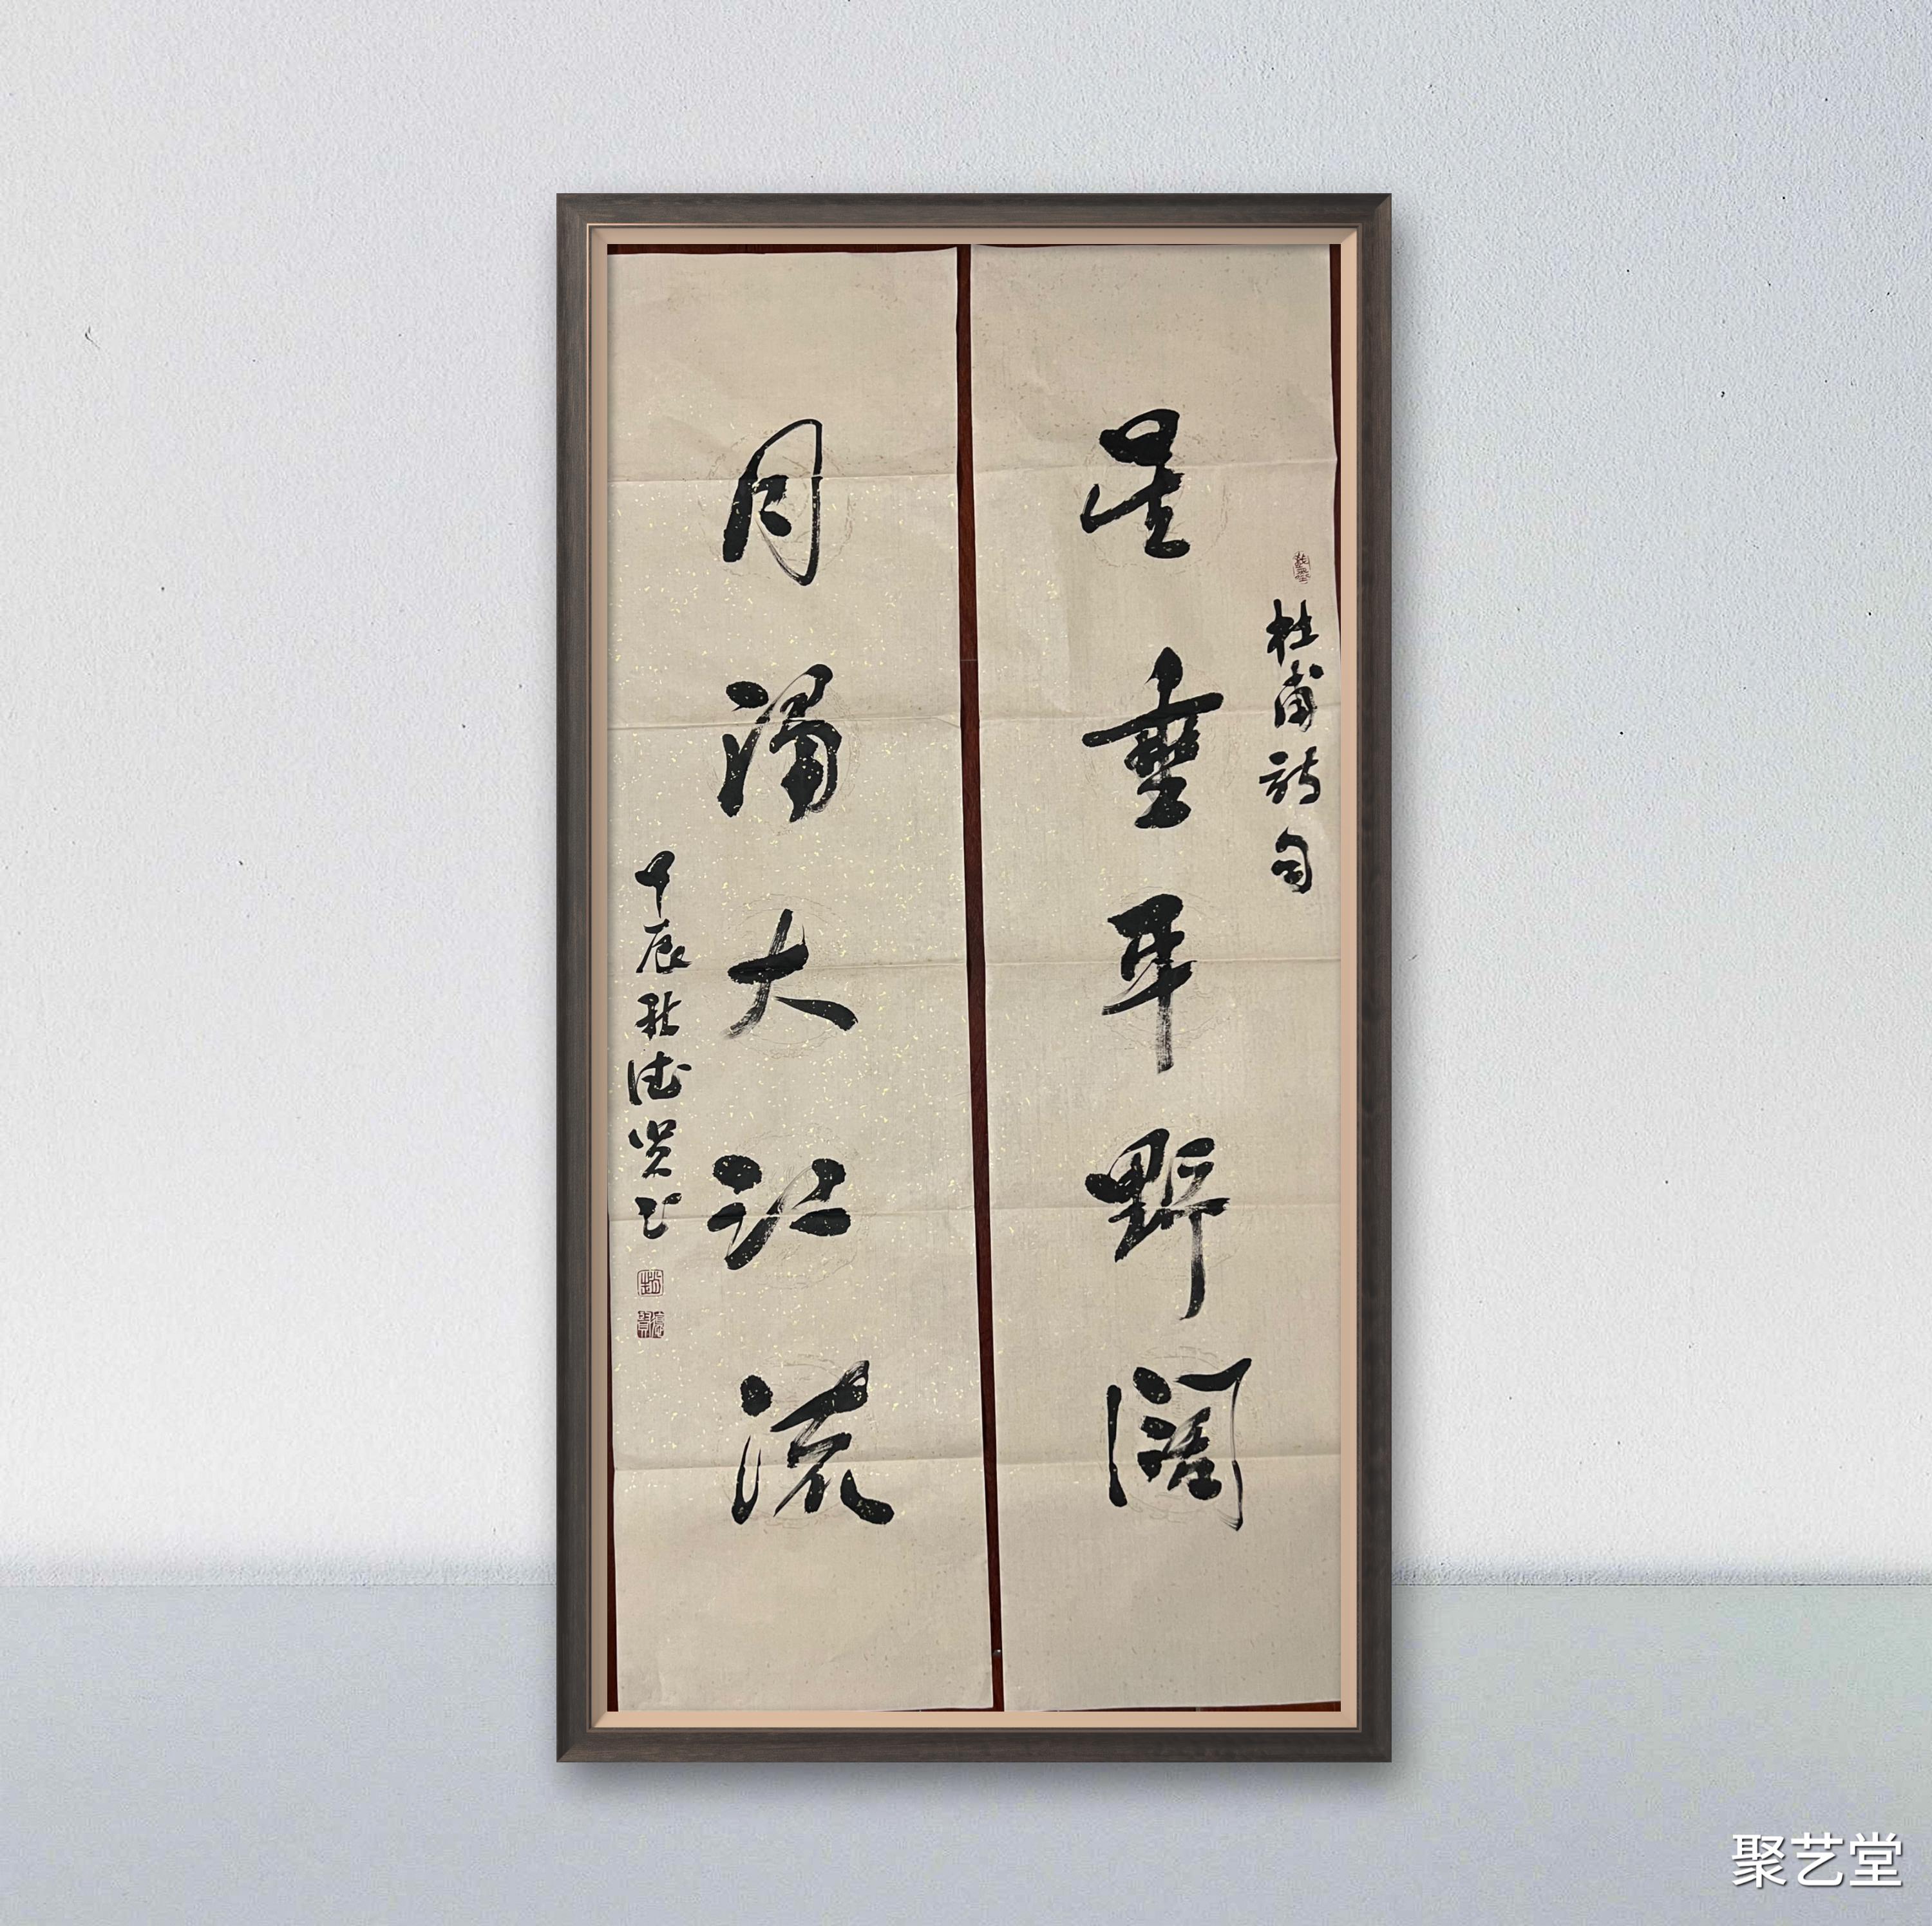 杜甫诗句
星垂平野阔
月涌大江流
甲辰秋德贤书
聚艺堂